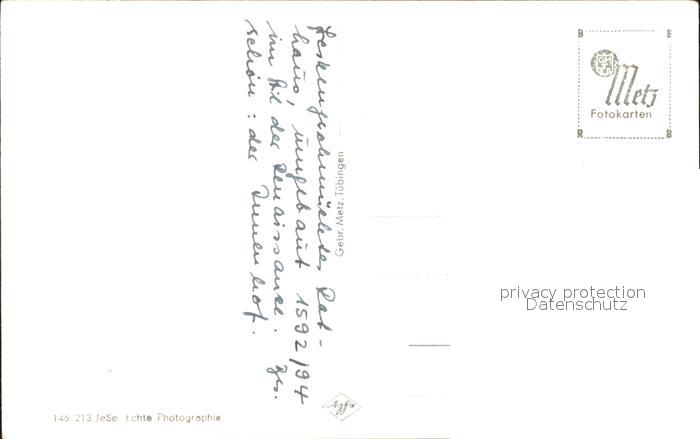 Freskengeschmücktes Rat-
haus, umgebaut 1592/94
im Stil der Renaissance. Bes.
schön: der Innenhof.
Gebr. Metz, Tübingen
B B
Metz
Fotokarten
R B
privacy protection
Datenschutz
Agfa
146/213 JeSe Echte Photographie